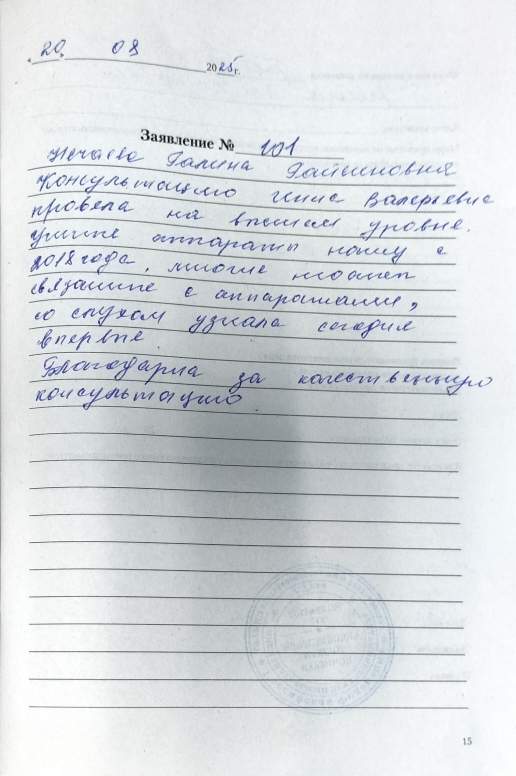 « 20 » 08 2025 г.
Заявление № 101
Нечаева Галина
Консультацию Валерьевна
провела на высшем уровне.
ушные аппараты ношу с
2018 года, многие
связанные с аппаратами,
со слухом узнала сегодня
впервые.
Благодарна за качественную
консультацию
15